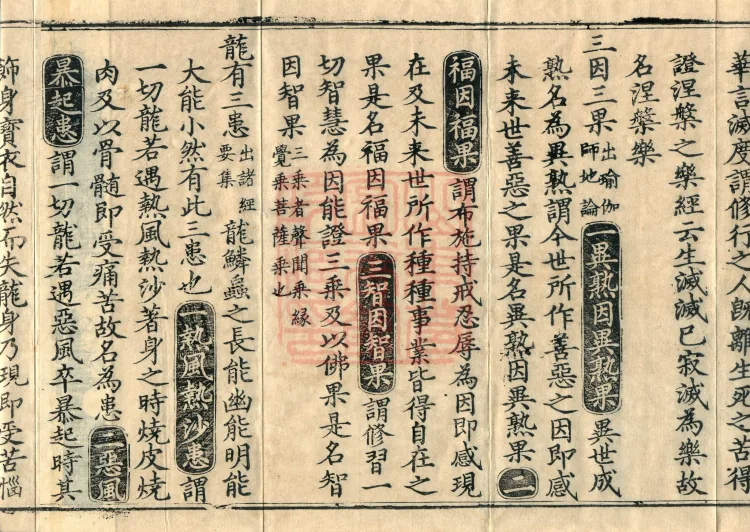 華言滅度謂修行之人旣離生死之苦得
證涅槃之樂經云生滅滅已寂滅為樂故
名涅槃樂
三因三果出瑜伽師地論一異熟因異熟果異世成
熟名為異熟謂今世所作善惡之因即感
未来世善惡之果是名異熟因異熟果二
福因福果謂布施持戒忍辱為因即感現
在及未来世所作種種事業皆得自在之
果是名福因福果三智因智果謂修習一
切智慧為因能證三乗及以佛果是名智
因智果三乗者聲聞乗緣覺乗菩薩乗也
龍有三患出諸經要集龍鱗蟲之長能幽能明能
大能小然有此三患也一熱風熱沙患謂
一切龍若遇熱風熱沙著身之時燒皮燒
肉及以骨髓即受痛苦故名為患二惡風
暴起患謂一切龍若遇惡風卒暴起時其
飾身寶衣自然而失龍身乃現即受苦惱